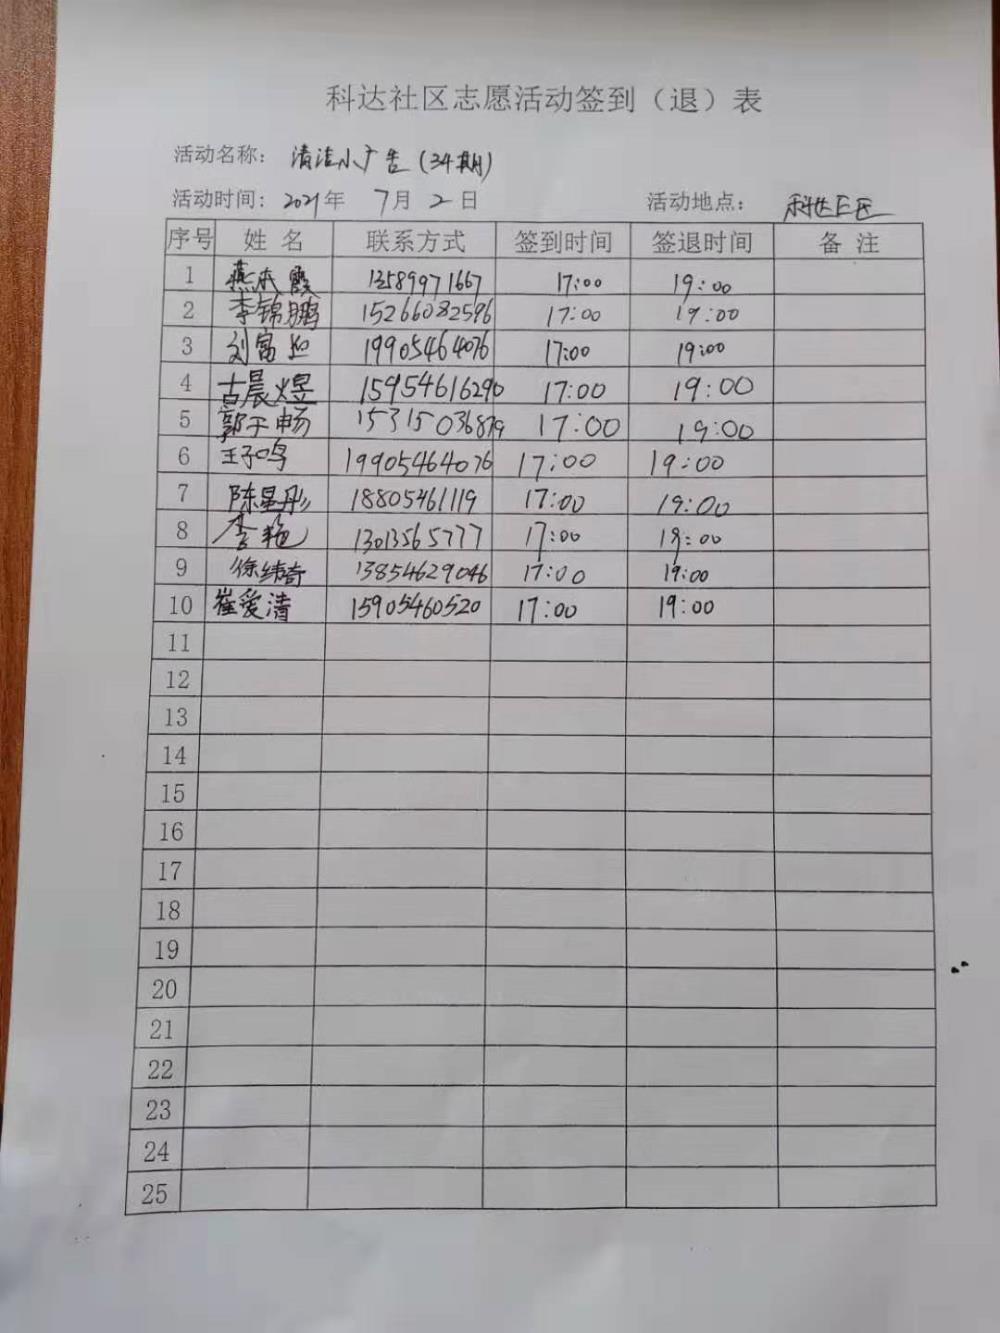 科达社区志愿活动签到（退）表
活动名称： 清洁小广告(34期)
活动时间：2021年 7月 2日 活动地点： 科达E区
序号 姓名 联系方式 签到时间 签退时间 备注
1 燕 霞 13589971667 17:00 19:00
2 李锦鹏 15266082596 17:00 19:00
3 刘富 19905464076 17:00 19:00
4 古晨煜 15954616290 17:00 19:00
5 郭于畅 15315036879 17:00 19:00
6 王子鸣 19905464076 17:00 19:00
7 陈星彤 18805461119 17:00 19:00
8 李艳 13013565777 17:00 19:00
9 徐纬奇 13854629046 17:00 19:00
10 崔爱清 15905460520 17:00 19:00
11
12
13
14
15
16
17
18
19
20
21
22
23
24
25